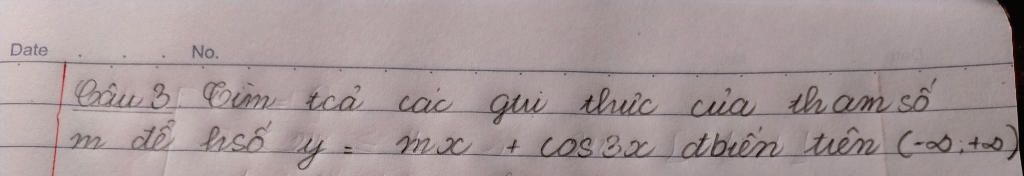 Date . . . . No.
Câu 3 Tìm tcả các giá thức của tham số
m để hsố y = mx + cos3x đbiến trên (-∞; +∞)